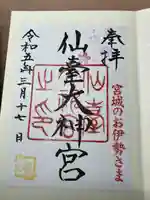 奉拝
宮城のお伊勢さま
仙臺大神宮
令和五年三月十七日